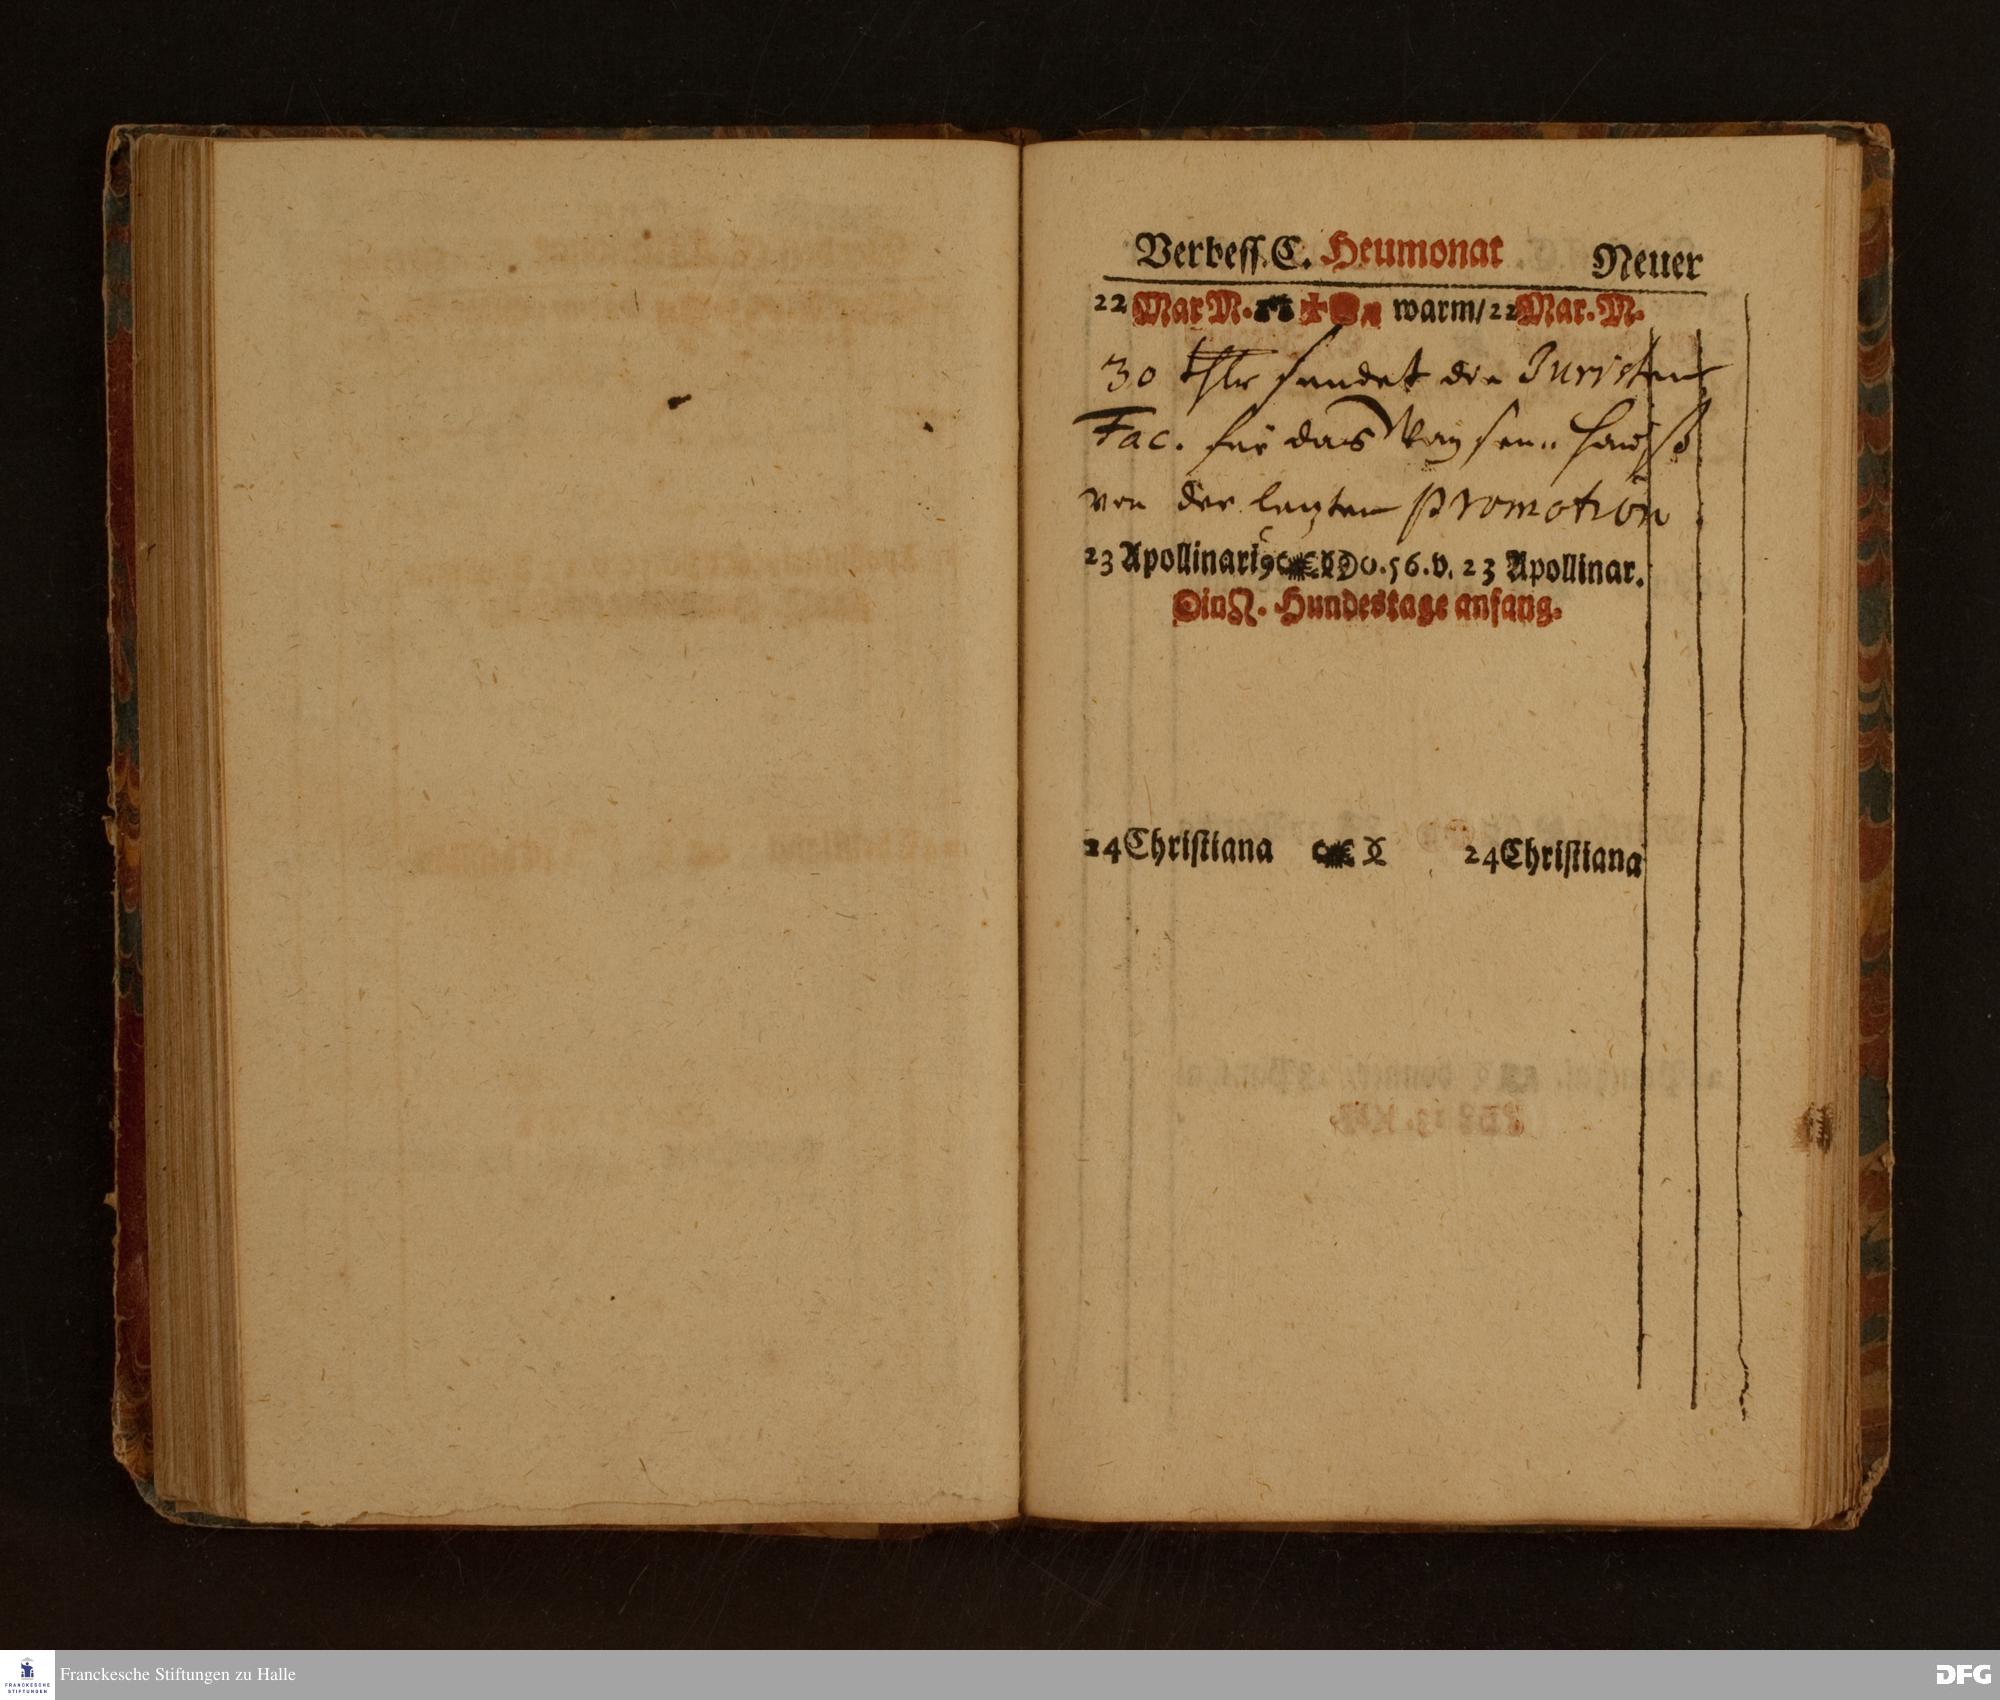 Verbess. C. Heumonat Neuer
22 Mar M. warm/ 22 Mar. M.
30 thlr sendet die Juristen
Fac. für das Waysen-hauß
von der lezten promotion
23 Apollinari9 0.56.v. 23 Apollinar.
Hundestage anfang.
24 Christiana 24 Christiana
Franckesche Stiftungen zu Halle
FRANCKESCHE
STIFTUNGEN
DFG